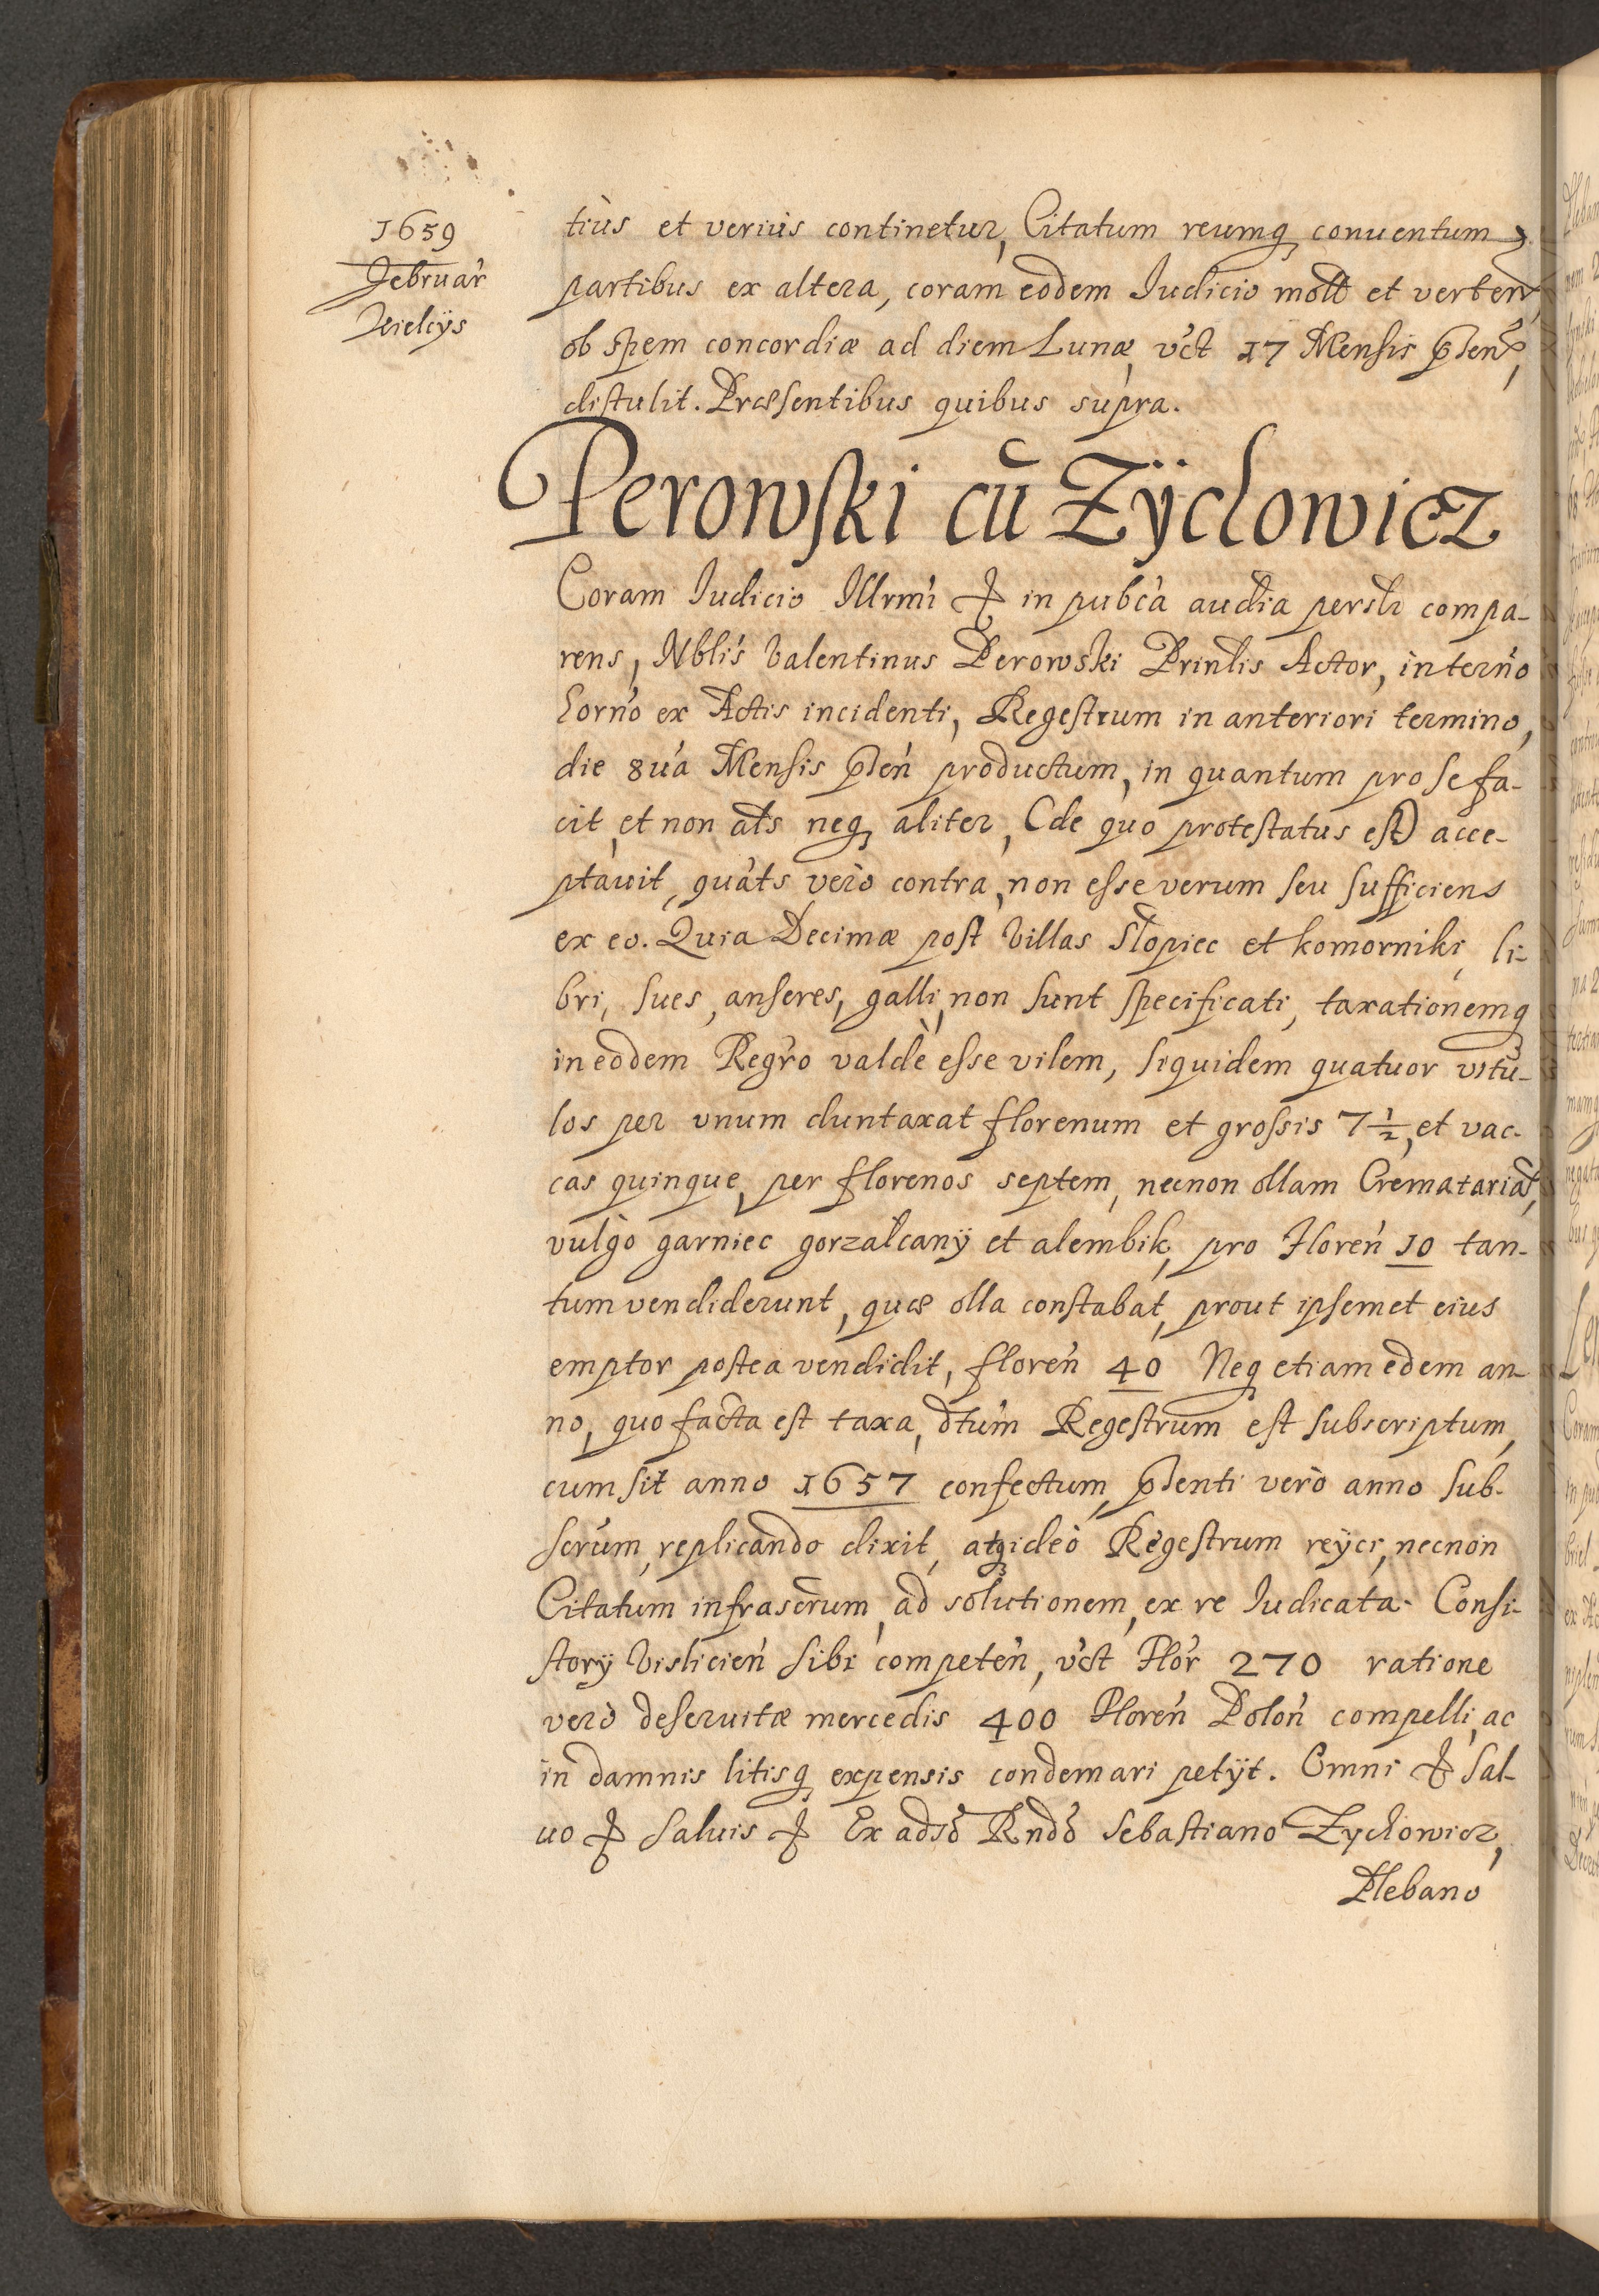 1659
Februar̃
Kielcÿs
tiùs et veriùs continetur, Citatum reumq conuentum
partibus ex altera, coram eodem Iudicio mott et verten,
ob spem concordiæ ad diem Lunæ, vct 17 Mensis pñten,
distulit. Præsentibus quibus supra.
Perowski cũ Zÿchowicz
Coram Iudicio Illrmi & in pubca audia persłr compa-
rens, Nblis Valentinus Perowski Prinlis Actor, in terno
horno ex Actis incidenti, Regestrum in anteriori termino,
die 8ua Mensis pñten productum, in quantum pro se fa-
cit, et non ałts neq aliter, (de quo protestatus est) acce-
ptauit, quats verò contra, non esse verum seu sufficiens
ex eo. Quia Decimæ post Villas Słopiec et komorniki, li-
bri, sues, anseres, galli, non sunt specificati, taxationemq
in eodem Regro valdè esse vilem, siquidem quatuor vitu-
los per vnum duntaxat florenum et grossis 7½, et vac-
cas quinque, per florenos septem, necnon ollam Crematariã,
vulgo garniec gorzałcanÿ et alembik, pro Floren 10 tan-
tum vendiderunt, quæ olla constabat, prout ipsemet eius
emptor postea vendidit, floren 40 Neq etiam edem an-
no, quo facta est taxa, dtum Regestrum est subscriptum,
cum sit anno 1657 confectum, pñtenti verò anno sub-
scrum, replicando dixit, atq ideò Regestrum reÿci, necnon
Citatum infrascrum, ad solutionem, ex re Iudicata Consi-
storÿ Vislicien sibi competen, vct Flor 270 ratione
verò deseruitæ mercedis 400 Floren Polon compelli, ac
in damnis litisq expensis condemari petÿt. Omni & sal-
uo & saluis & Ex adso Rndo Sebastiano Zychowicz,
Plebano